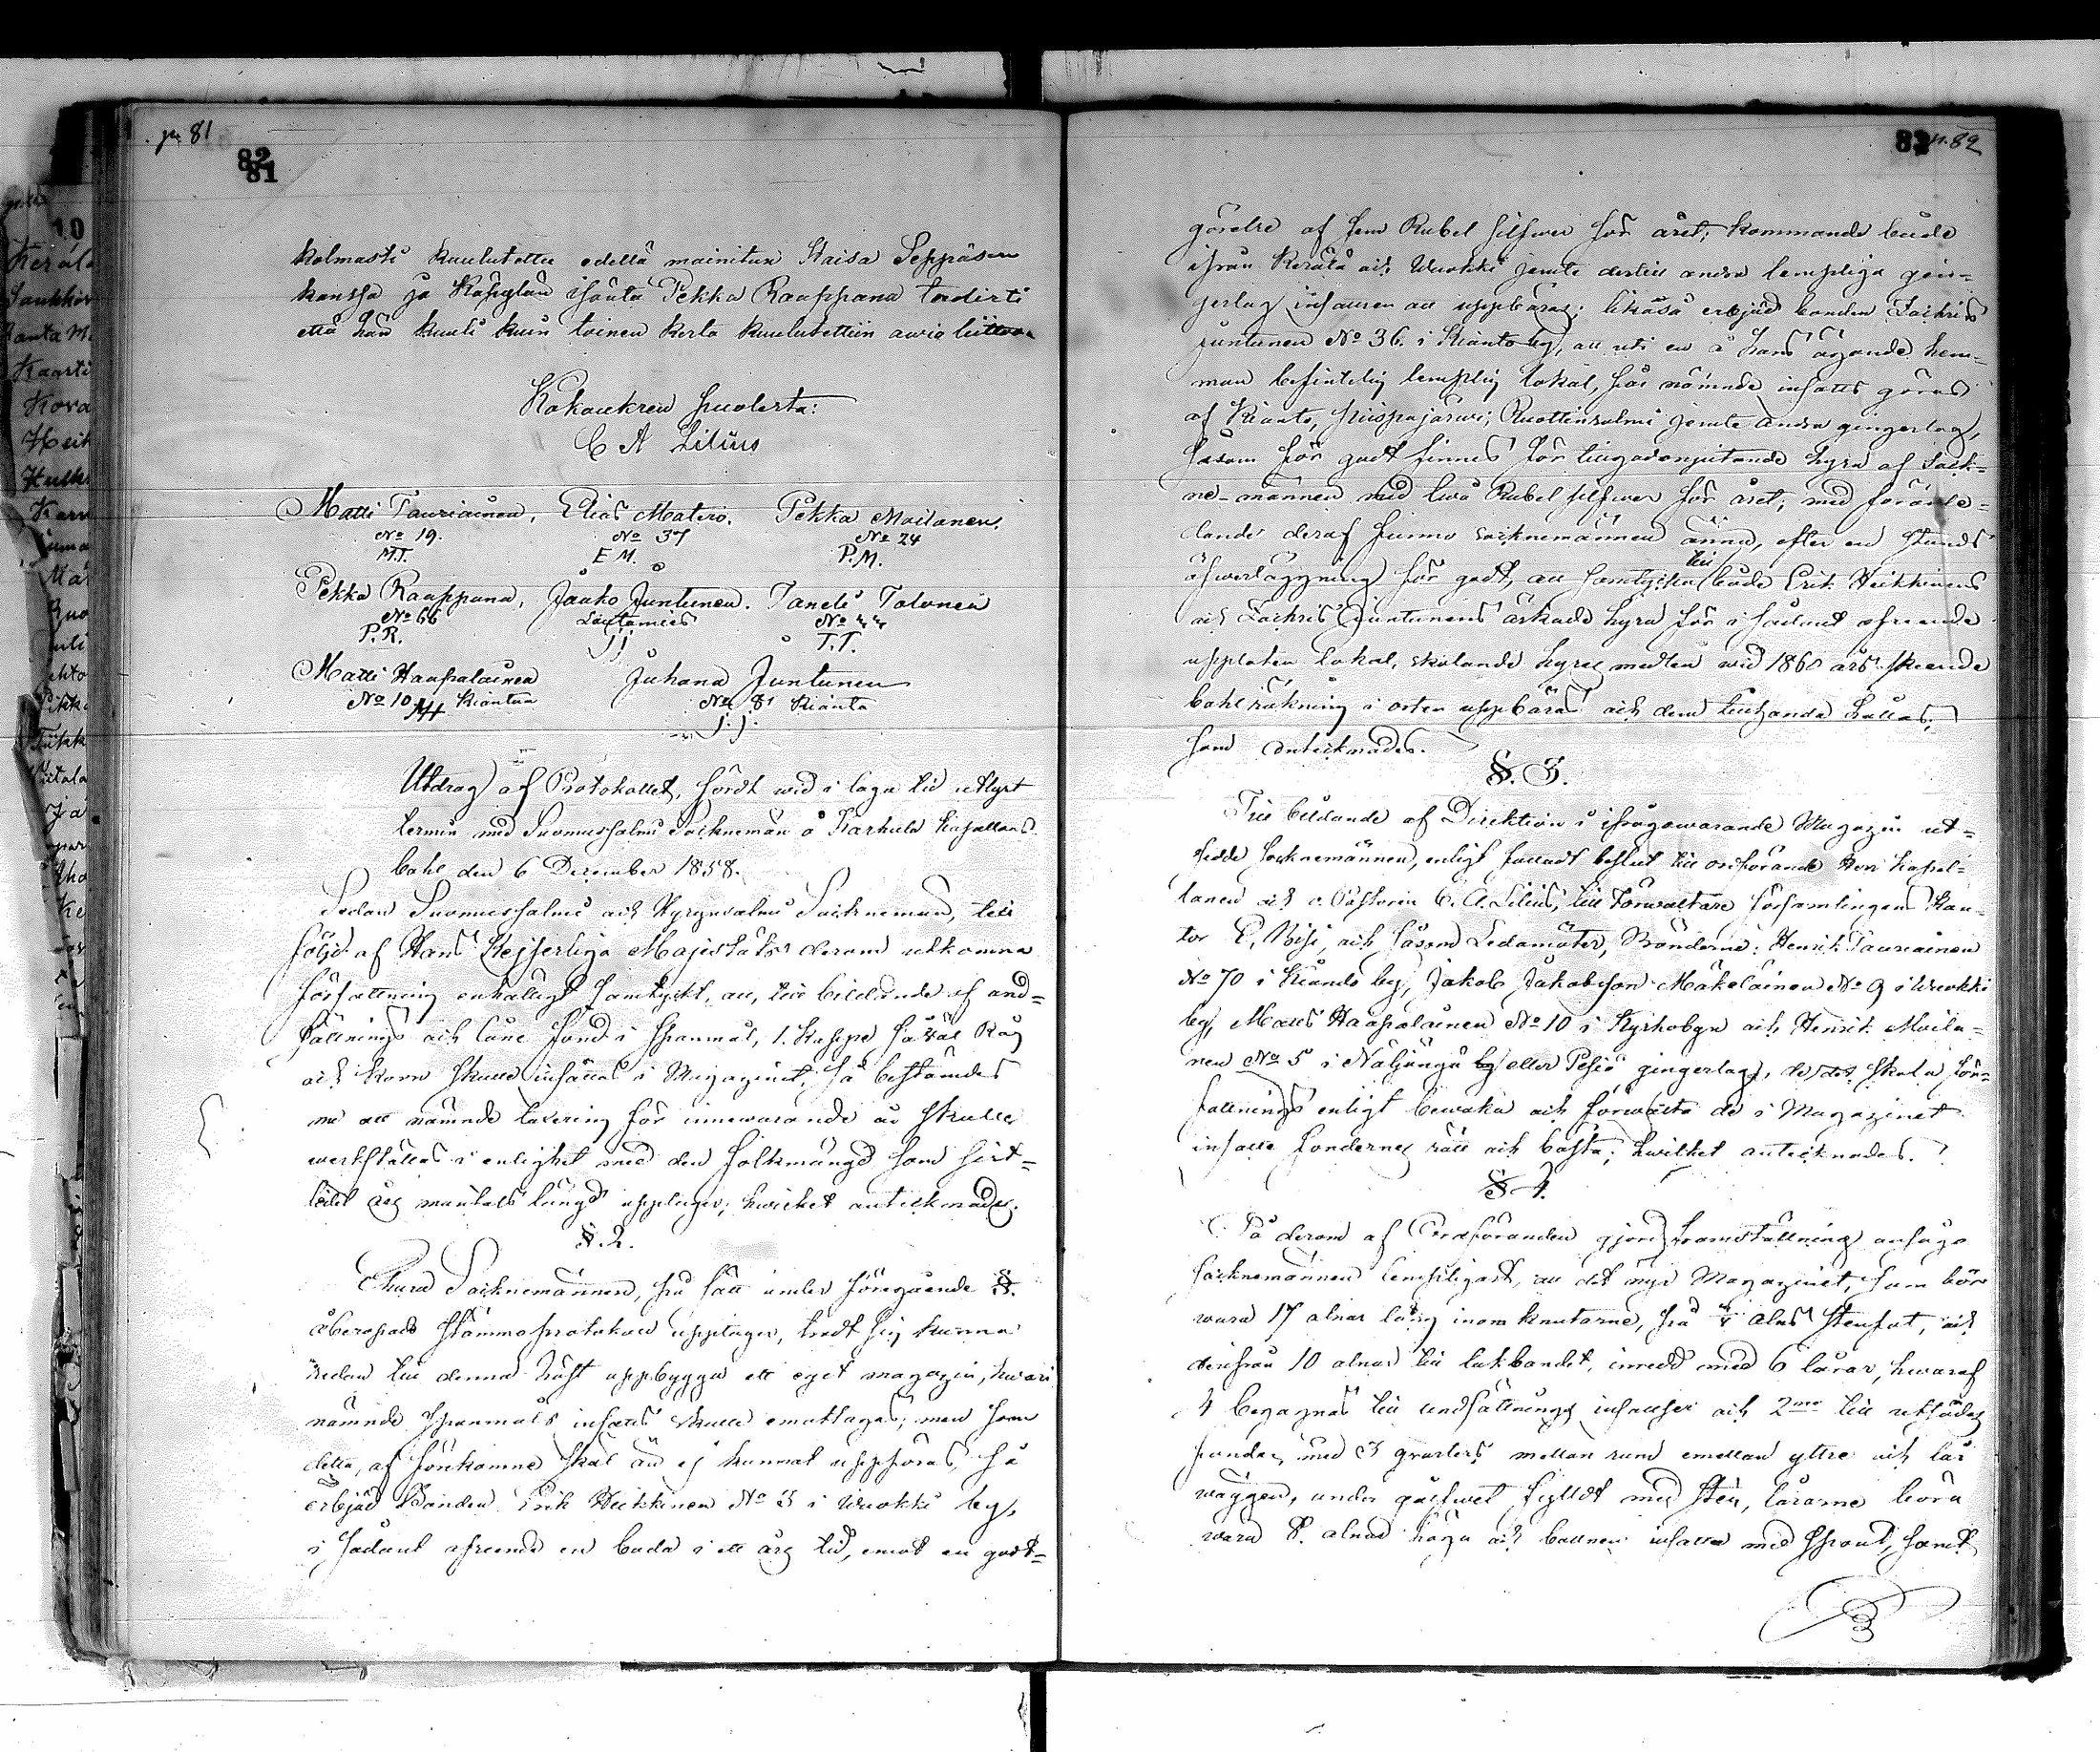 p. 81
82
81
kolmasti kuulutettu edellä mainitun Kaisa Seppäsen
kanssa ja Käpylän isäntä Pekka Raappana todisti
että hän kuuli kuin toinen kerta kuulutettiin awio liittoon
Kokouksen puolesta:
C A Lilius
Matti Tauriainen, Elias Matero. Pekka Moilanen.
No 19. No 37 No 24
M.T. E M. P.M.
Pekka Raappana, Jaako Juntunen. Taneli Tolonen
No 66 Lautamies No 44
P.R. J J T.T.
Matti Haapalainen Juhana Juntunen
No 10 Kiantaa No 81 Kianta
MH J.J.
Utdrag af Protokollet, fördt wid i laga tid utlyst
termin med Suomussalmi Socknemän å Karhula Kapellans
bohl den 6 December 1858.
Sedan Suomussalmi och Hyrynsalmi Socknemän, till
följd af Hans Kejserliga Majestäts derom utkomna
författning enhälligt samtyckt, att, till bildande af und=
sättnings och låne fond i Spanmål, 1. kappe så wäl Råg
och Korn skulle insättas i Magazinet, så bestämdes
nu att nämnde taxering för innewarande år skulle
werkställas i enlighet med den folkmängd som sist=
lidet års mantals längd upptager; hwilket antecknades.
§. 2.
Ehuru Socknemännen, på sätt under föregående §.
åberopade Stämmoprotokoll upptager, trodt sig kunna
redan till denna höst uppbygga ett eget magazin, hwari
nämnde spanmåls insatts skulle emottagas; men som
detta, af förekomne skäl än ej kunnat uppföras, så
erbjöd Bonden Erik Heikkinen No 3 i Wuokki by,
i sådant afseende en boda i ett års tid, emot en godt=
82 p. 82
görelse af fem Rubel silfwer för året; kommande både
ifrån Kerälä och Wuokki jemte dertill andra lämpliga gin=
gerlag insatsen att uppbäras; likaså erbjöd bonden Zachris
Juntunen No 36. i Kianto by, att uti en å hans ägande hem=
man befintelig lemplig lokal, får nämnde insatts göras
af Kianto, Piispajärwi, Ruottinsalmi jemte andra gingerlag,
såsom för godt finnes för tillgodonjutande hyra af Sock=
ne-männen med twå Rubel silfwer för året; med föranle=
dande deraf funno socknemännen ännu, efter en stunds
öfwerläggning för godt, att samtycka till både Erik Heikkinens
och Zachris Juntunens äskade hyra för i sådant afseende
upplåten lokal, skolande hyres medlen wid 1860 års skeende
bohlräkning i orten uppbäras och dem tillhanda hållas;
som antecknades.
§. 3.
Till bildande af Direktion i ifrågawarande Magazin ut=
sedde socknemännen, enligt fattadt beslut till ordförande Herr Kapel=
lanen och v. Pastorn C. A. Lilius, till Förwaltare församlingens Kan=
tor E. Bisi, och såsom Ledamöter, Bönderne: Henrik Tauriainen
No 70 i Kiando by, Jakob Jakobsson Mäkeläinen No 9 i Wuokki
by, Matts Haapalainen No 10 i Kyrkobyn och Henrik Moila=
nen No 5 i Näljängä by eller Pesiö gingerlag, skola för=
fattnings enligt bewaka och förwalta de i Magazinet
insatte fondernes rätt och bästa; hwilket antecknades.
§ 4.
På derom af Ordföranden gjord framställning ansågo
socknemännen lempligast, att det nya Magazinet, som bör
wara 17 alnar lång inom knutarne, på alns stenfot, och
derifrån 10 alnar till takbandet, inredd med 6 lårar, hwaraf
4 begagnas till undsättnings insattser och 2ne till utsädes
fonder, med 3 qvarters mellan rum emellan yttre och lår
wäggen, under golfwet fylldt med sten, lårarne böra
wara 8. alnar höga och bottnen insatta med spont, samt